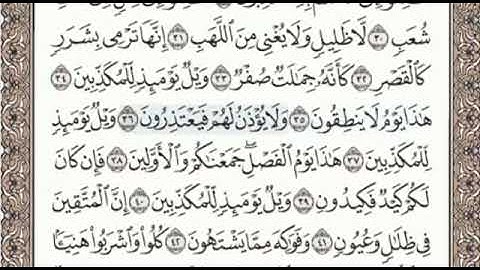 شُعَبٍ ٣٠ لَّا ظَلِيلٍ وَلَا يُغْنِى مِنَ ٱللَّهَبِ ٣١ إِنَّهَا تَرْمِى بِشَرَرٍ
كَٱلْقَصْرِ ٣٢ كَأَنَّهُۥ جِمَٰلَتٌ صُفْرٌ ٣٣ وَيْلٌ يَوْمَئِذٍ لِّلْمُكَذِّبِينَ ٣٤
هَٰذَا يَوْمُ لَا يَنطِقُونَ ٣٥ وَلَا يُؤْذَنُ لَهُمْ فَيَعْتَذِرُونَ ٣٦ وَيْلٌ يَوْمَئِذٍ
لِّلْمُكَذِّبِينَ ٣٧ هَٰذَا يَوْمُ ٱلْفَصْلِ ۖ جَمَعْنَٰكُمْ وَٱلْأَوَّلِينَ ٣٨ فَإِن كَانَ
لَكُمْ كَيْدٌ فَكِيدُونِ ٣٩ وَيْلٌ يَوْمَئِذٍ لِّلْمُكَذِّبِينَ ٤٠ إِنَّ ٱلْمُتَّقِينَ
فِى ظِلَٰلٍ وَعُيُونٍ ٤١ وَفَوَٰكِهَ مِمَّا يَشْتَهُونَ ٤٢ كُلُوا۟ وَٱشْرَبُوا۟ هَنِيٓـًٔۢا